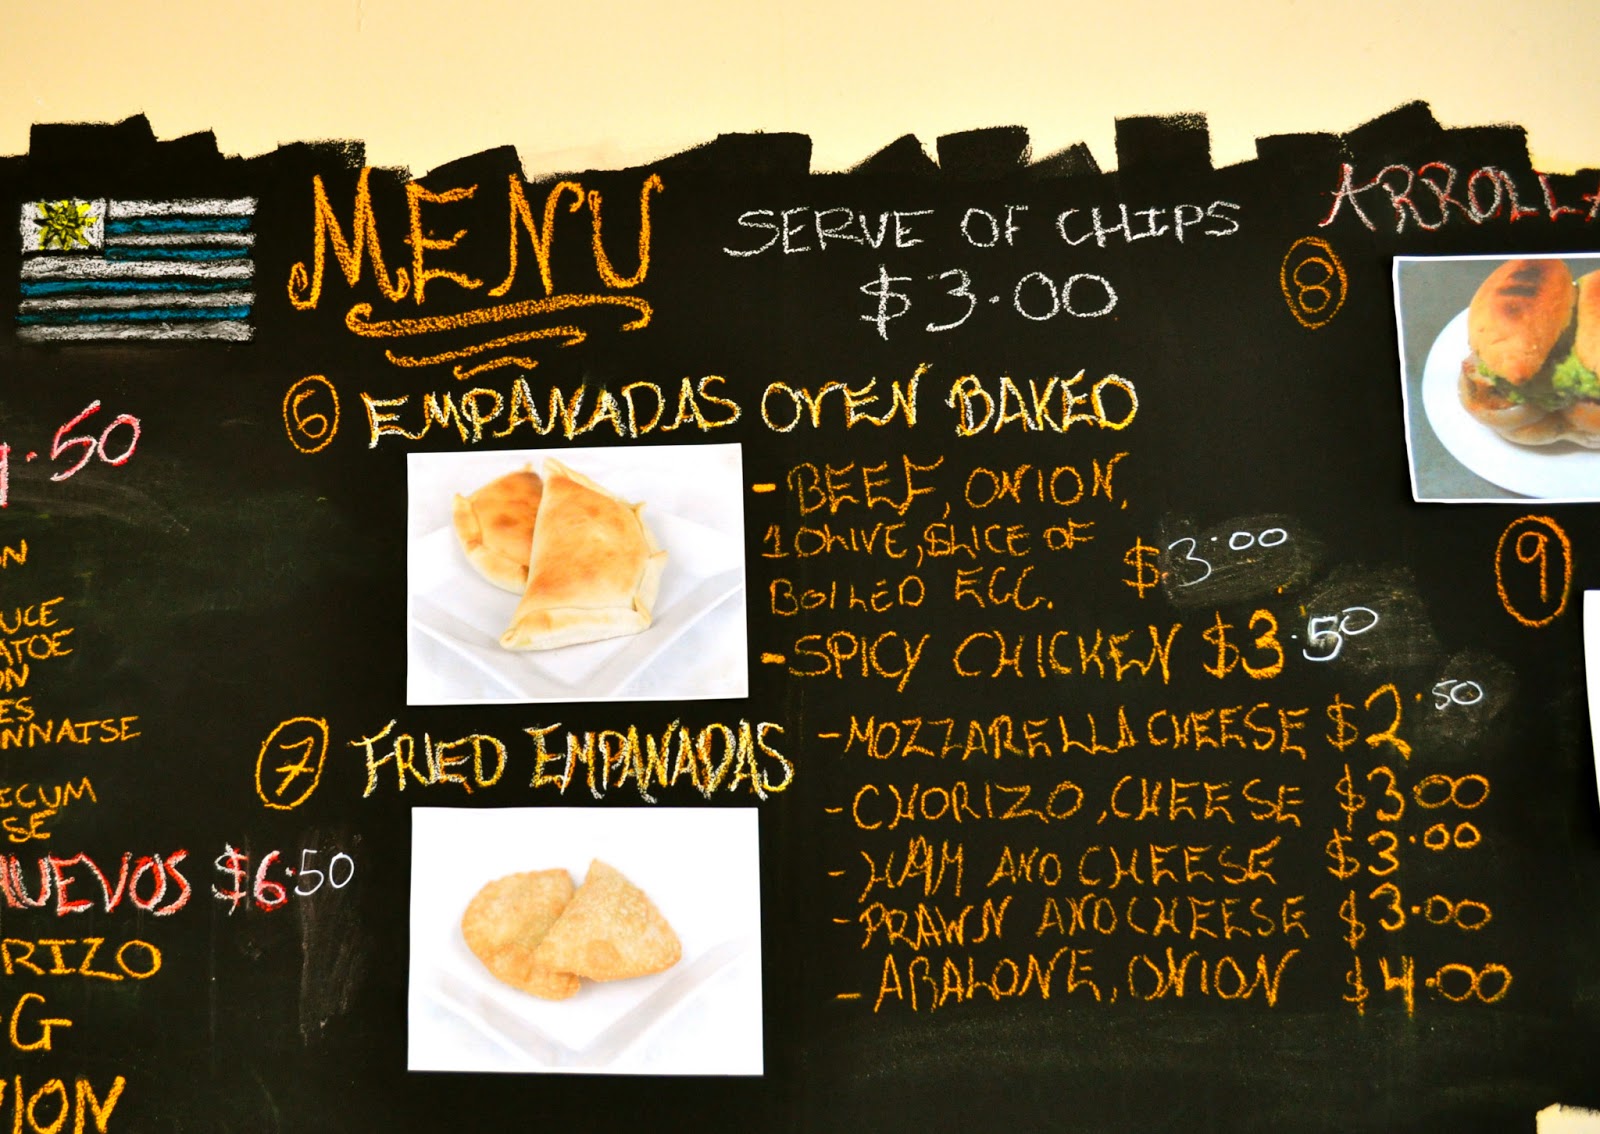 MENU
SERVE OF CHIPS
$3.00
6 EMPANADAS OVEN BAKED
- BEEF, ONION,
1 OLIVE, SLICE OF
BOILED EGG. $3.00
- SPICY CHICKEN $3.50
7 FRIED EMPANADAS
- MOZZARELLA CHEESE $2.50
- CHORIZO, CHEESE $3.00
- HAM AND CHEESE $3.00
- PRAWN AND CHEESE $3.00
- ABALONE, ONION $4.00
8
ARROLLA
9
.50
ON
UCE
ATOE
ON
ES
NNAISE
ECUM
SE
HUEVOS $6.50
RIZO
G
ION